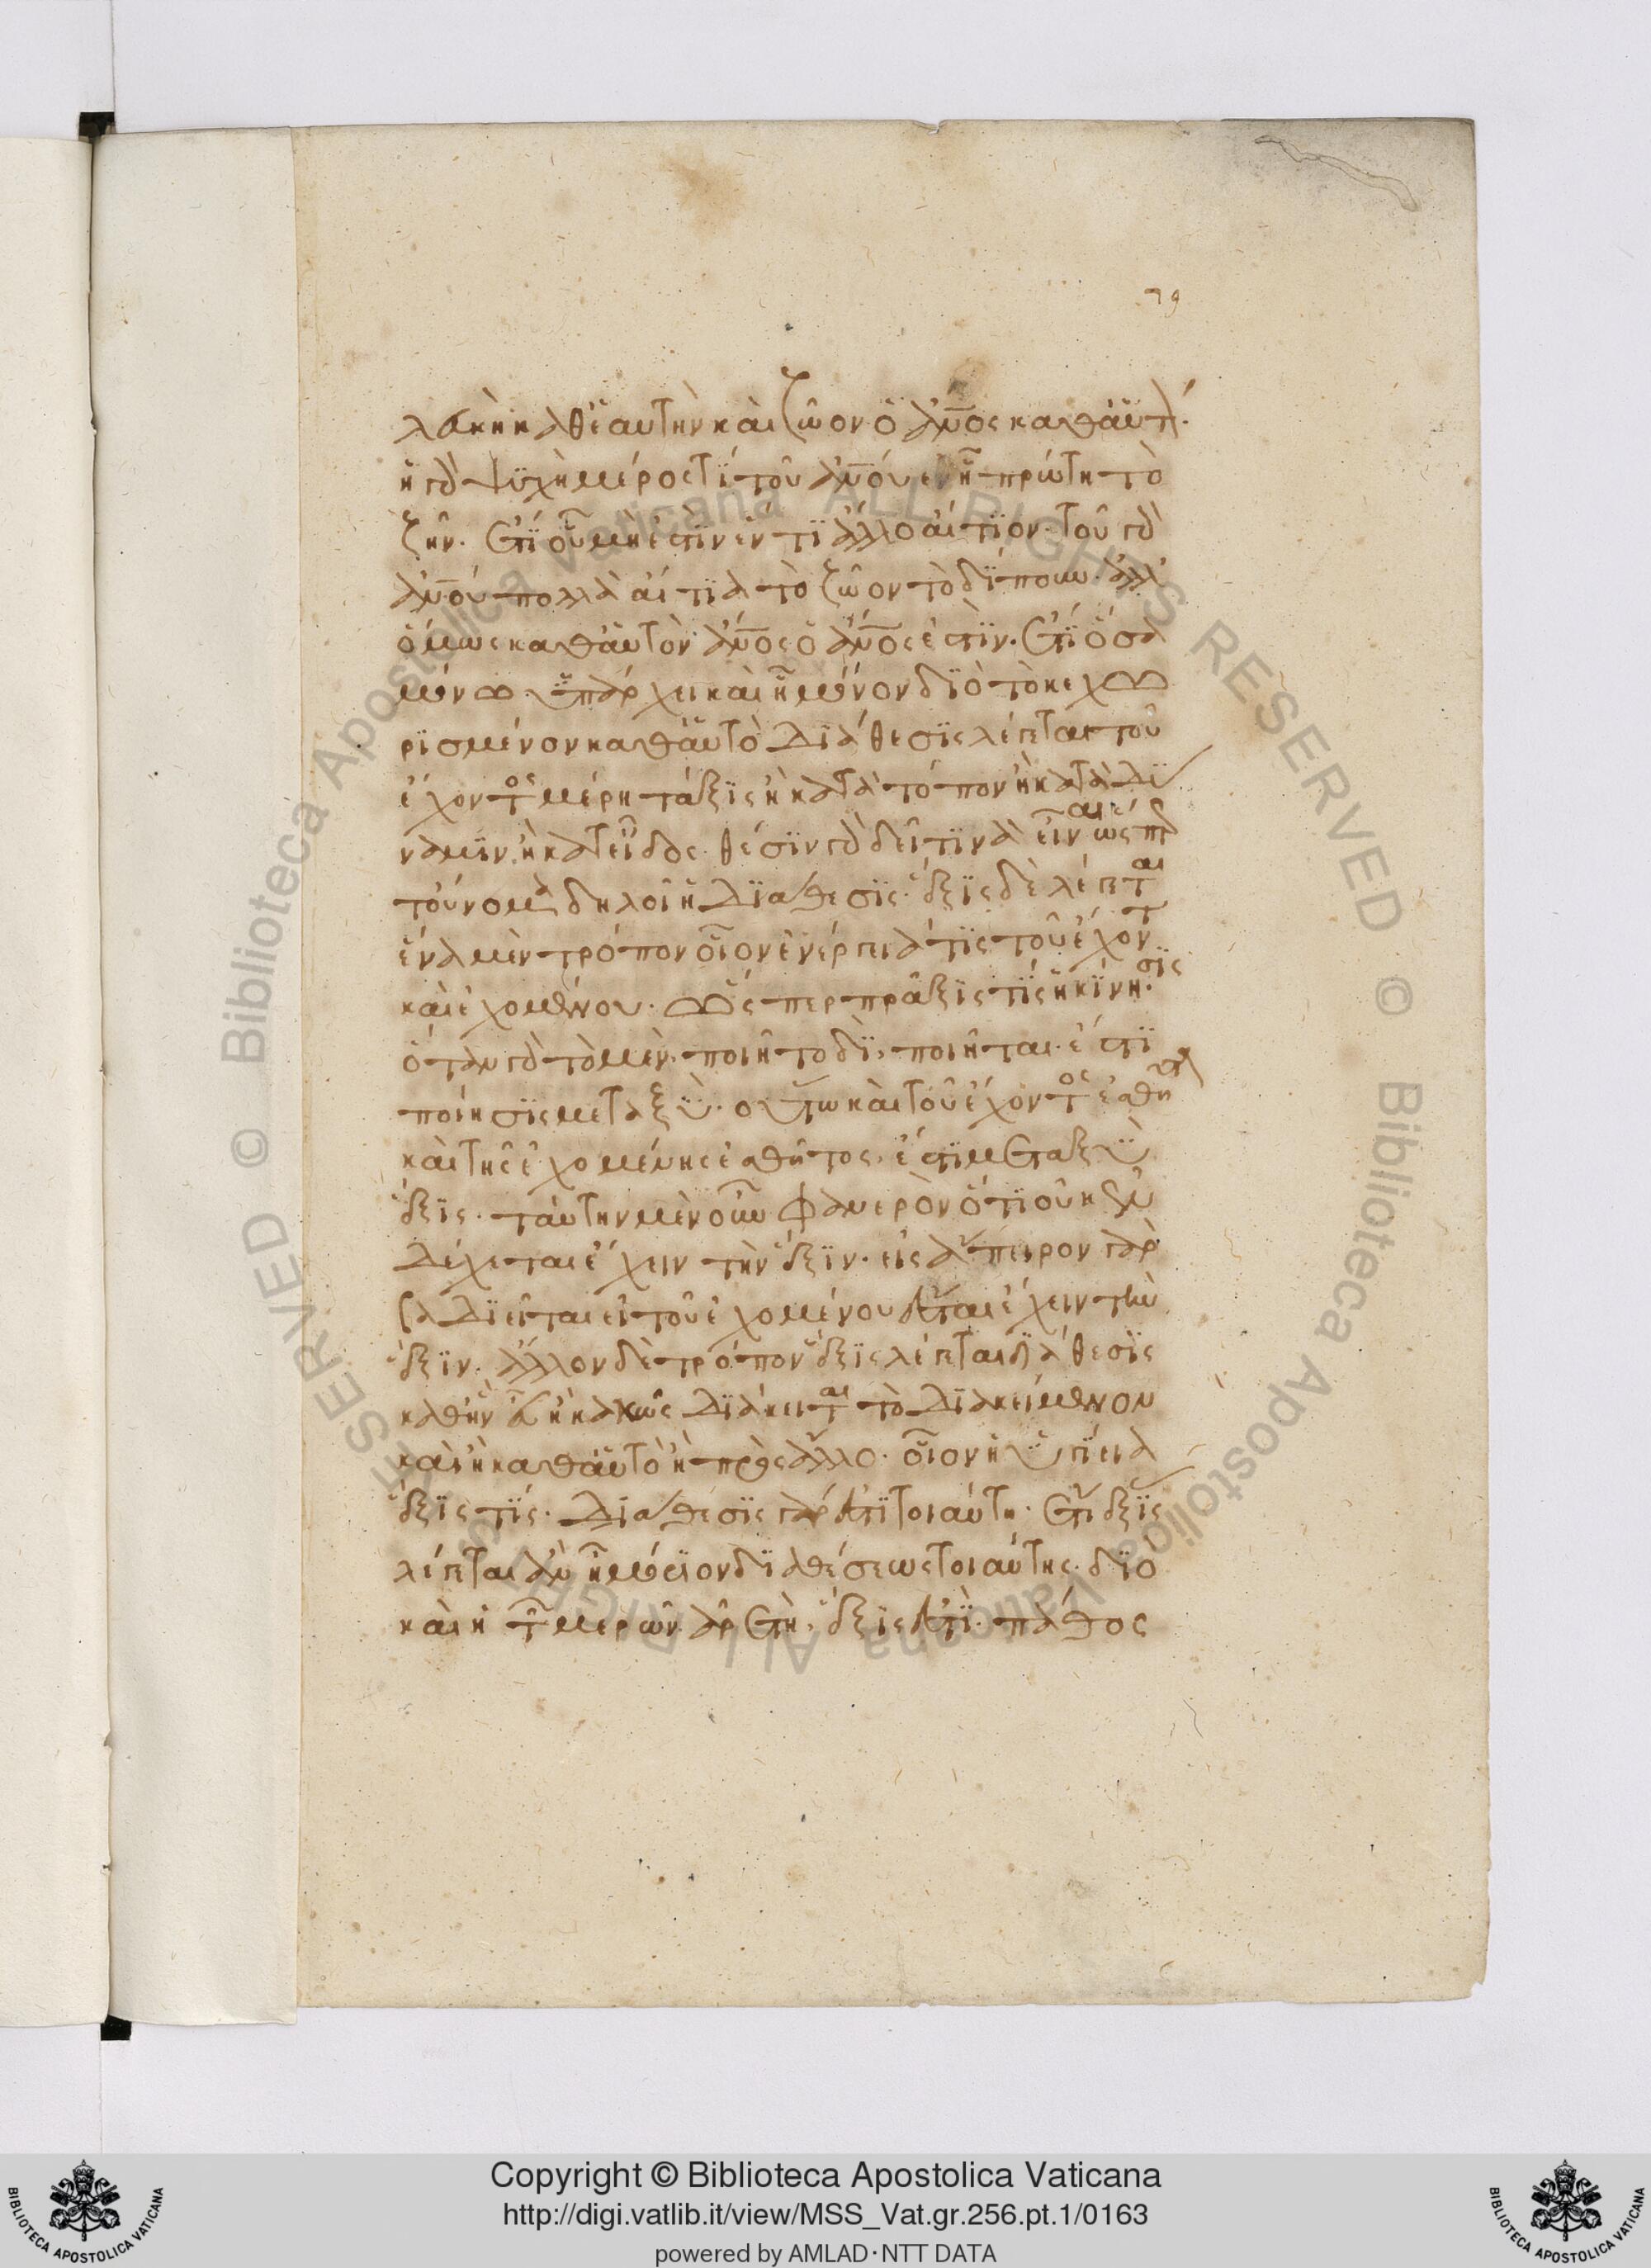 79
λευκὴ καθ' ἑαυτὴν καὶ ζῶον ὁ ἄν̅ος καθ' αὑτό.
ἡ γὰρ ψυχὴ μέρος τί τοῦ ἀν̅ου ἐν ἧ πρώτη τὸ
ζῆν. ἔτι οὗ μὴ ἐστὶν ἐν τὶ ἄλλο αἴτιον. τοῦ γὰρ
ἀν̅ου πολλὰ αἴτια τὸ ζῶον τὸ δίπουν. ἀλλ'
ὅμως καθ' αὑτὸν ἄν̅ος ὁ ἄν̅ος ἐστὶν. ἔτι ὅσα
μόνω ὑπάρχει καὶ ἧ μόνον διὸ τὸ κεχω
ρισμένον καθ' αὑτὸ διάθεσις λέγεται τοῦ
ἔχοντος μέρη τάξις ἢ κατὰ τόπον ἢ κατὰ δύ
ναμιν ἢ κατ' εἶδος. θέσιν γὰρ δεῖ τινὰ εἶναι ὥσπερ
τοὔνομα δηλοῖ ἡ διάθεσις. ἕξις δὲ λέγεται
ἕνα μὲν τρόπον οἷον ἐνέργειά τις τοῦ ἔχοντ
καὶ ἐχομένου. ὥσπερ πρᾶξις τίς ἢ κίνησις.
ὅταν γὰρ τὸ μὲν ποιῆ τὸ δὲ ποιῆται. ἔστι
ποίησις μεταξύ. οὕτω καὶ τοῦ ἔχοντος ἐσθῆτα
καὶ τῆς ἐχομένης ἐσθῆτος. ἔστι μεταξὺ
ἕξις. ταύτην μὲν οὖν φανερὸν ὅτι οὐκ ἐν
δέχεται ἔχειν τὴν ἕξιν. εἰς ἄπειρον γὰρ
βαδιεῖται εἰ τοῦ ἐχομένου ἔσται ἔχειν τὴν
ἕξιν. ἄλλον δὲ τρόπον ἕξις λέγεται διάθεσις
καθ' ἣν εὖ ἢ κακῶς διάκειται τὸ διακείμενον
καὶ ἢ καθ' αὑτὸ ἢ πρὸς ἄλλο. οἷον ἡ ὑγίεια
ἕξις τίς. διάθεσις γάρ ἐστι τοιαύτη. ἔτι ἕξις
λέγεται ἂν ἦ μόριον διαθέσεως τοιαύτης. διὸ
καὶ ἡ τῶν μερῶν ἀρετὴ ἕξις ἐστὶ. πάθος
Copyright © Biblioteca Apostolica Vaticana
http://digi.vatlib.it/view/MSS_Vat.gr.256.pt.1/0163
powered by AMLAD·NTT DATA